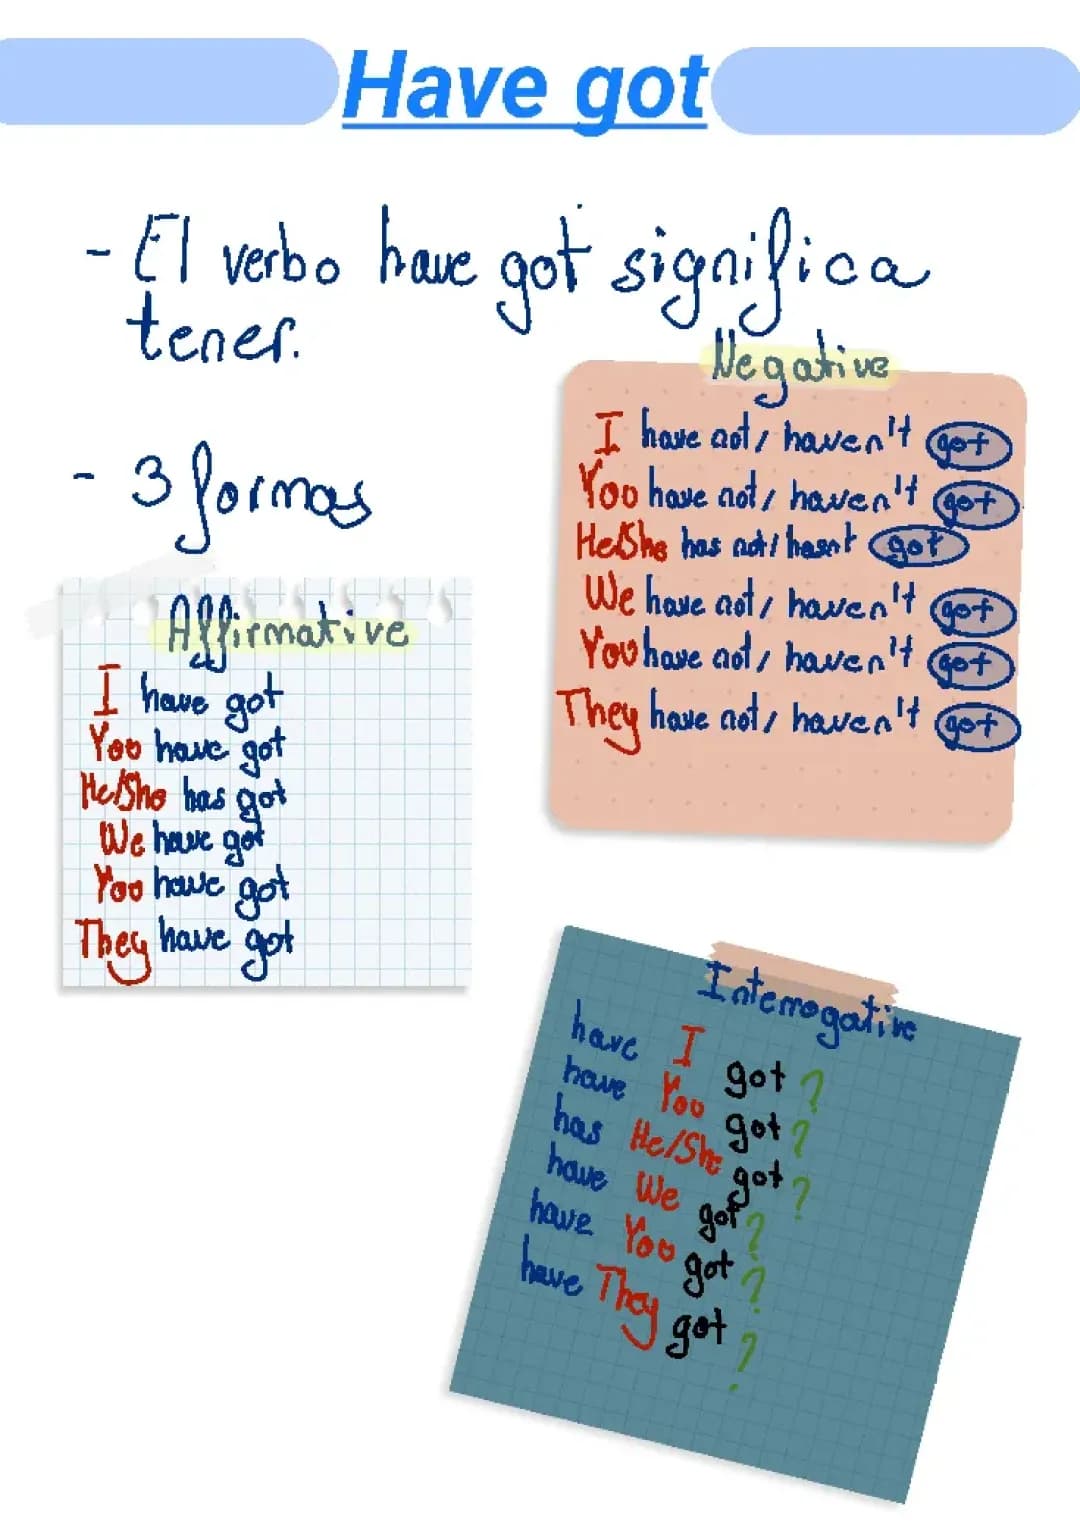 Have got
- El verbo have got significa
tener.
- 3 formas
Affirmative
I have got
You have got
He/She has got
We have got
You have got
They have got
Negative
I have not/ haven't got
You have not/ haven't got
He/She has not/ hasnt got
We have not/ haven't got
You have not/ haven't got
They have not/ haven't got
Interrogative
have I got?
have You got?
has He/She got?
have We got?
have You got?
have They got?